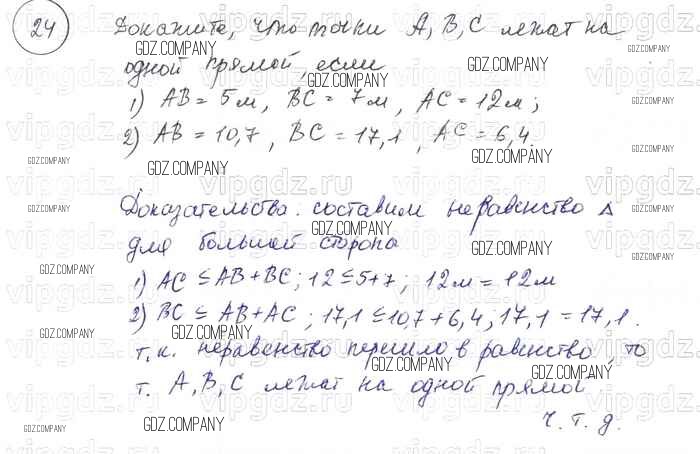 24
Докажите, что точки А, В, С лежат на
одной прямой, если
1) АВ = 5м, ВС = 7м, АС = 12м;
2) АВ = 10,7, ВС = 17,1, АС = 6,4.
Доказательство: составим неравенство Δ
для большей стороны
1) АС ≤ АВ+ВС; 12 ≤ 5+7; 12м = 12м
2) ВС ≤ АВ+АС; 17,1 ≤ 10,7+6,4, 17,1 = 17,1.
т.к. неравенство перешло в равенство, то
т. А, В, С лежат на одной прямой
ч.т.д.
GDZ.COMPANY
vipgdz.ru